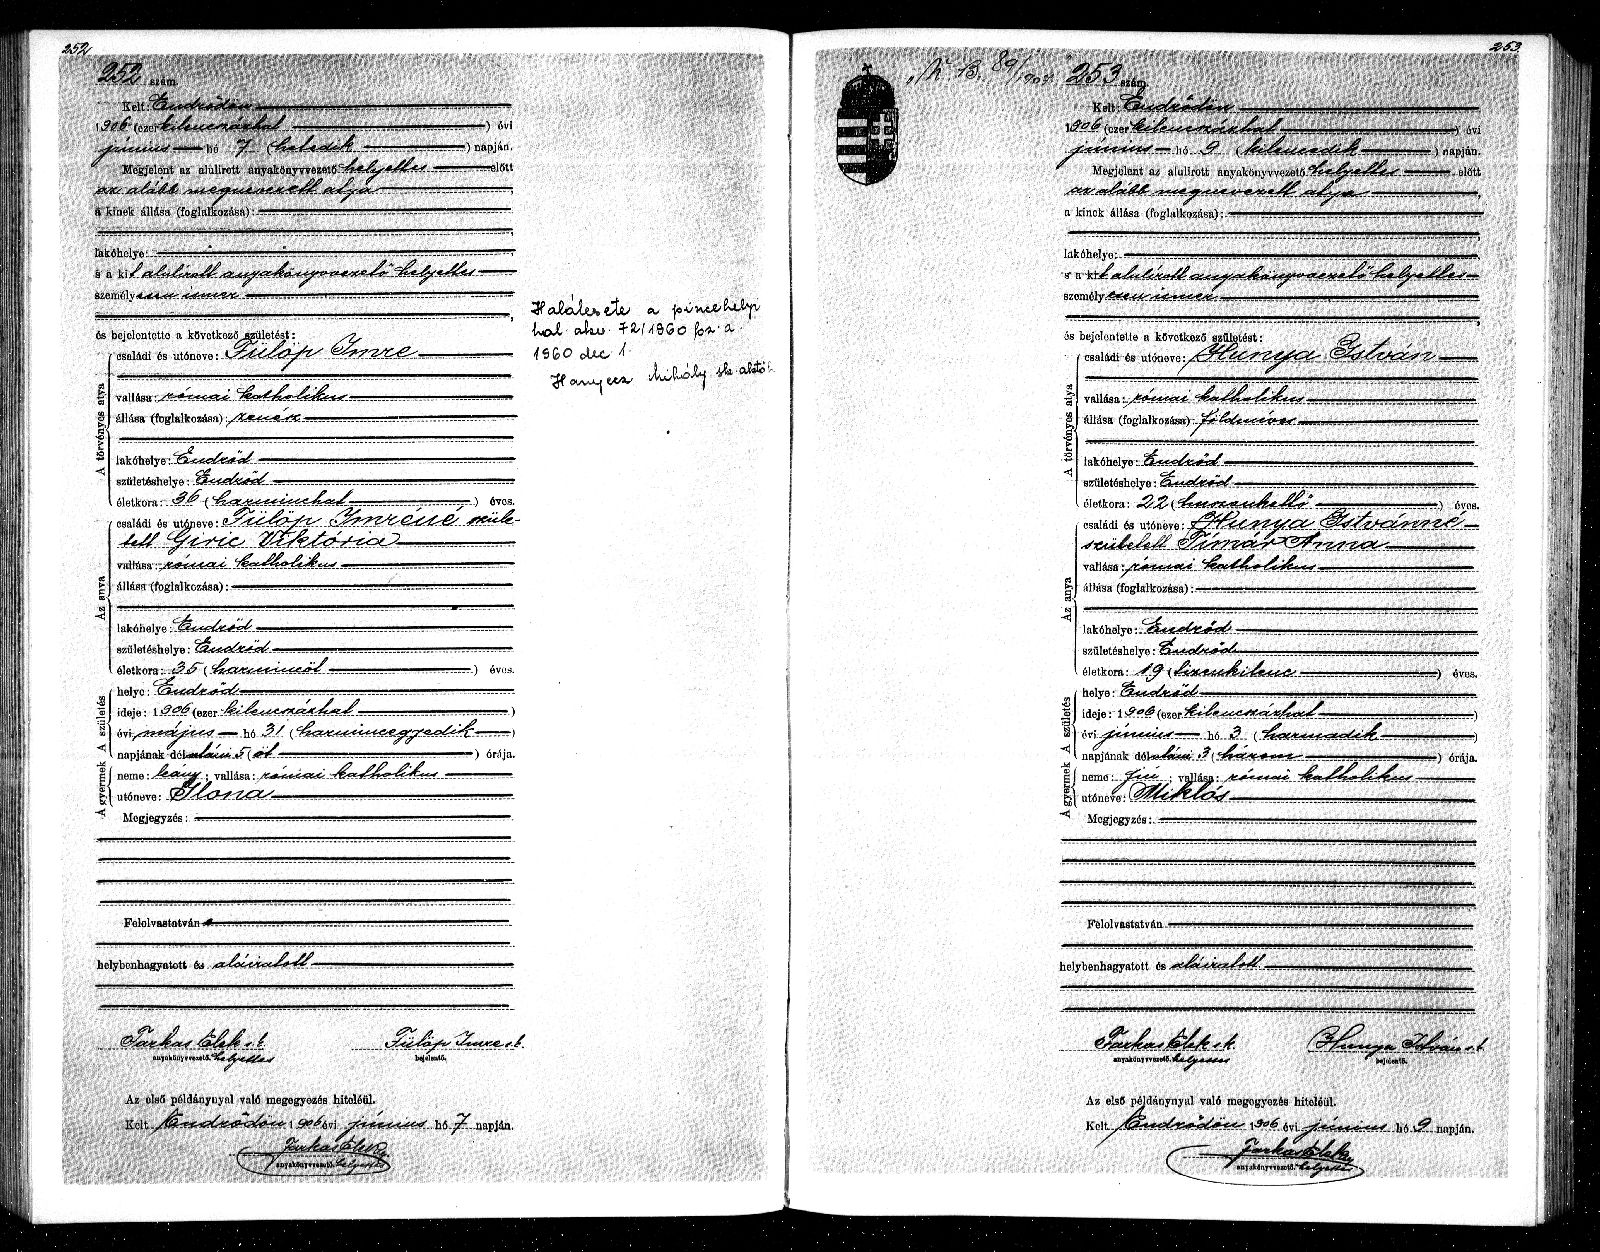 252
252 szám
Kelt: Endrődön
1906 (ezer kilenczázhat) évi
június hó 7 (hetedik) napján.
Megjelent az alulirott anyakönyvvezető helyettes előtt
az alább megnevezett atya
a kinek állása (foglalkozása):
lakóhelye:
s a kit alulírott anyakönyvvezető helyettes
személyesen ismer
és bejelentette a következő születést:
A törvényes atya
családi és utóneve: Fülöp Imre
vallása: római katholikus
állása (foglalkozása):
lakóhelye: Endrőd
születéshelye: Endrőd
életkora: 36 (harminchat) éves.
Az anya
családi és utóneve: Fülöp Imréné szüle-
tett Giric Viktória
vallása: római katholikus
állása (foglalkozása):
lakóhelye: Endrőd
születéshelye: Endrőd
életkora: 35 (harmincöt) éves.
A gyermek A születés
helye: Endrőd
ideje: 1906 (ezer kilenczázhat)
évi május hó 31 (harmincegyedik)
napjának délutáni 5 (öt) órája.
neme: leány; vallása: római katholikus
utóneve: Ilona
Megjegyzés:
Felolvastatván
helybenhagyatott és aláíratott
Farkas Elek s.k. Fülöp Imre s.k.
anyakönyvvezető. helyettes bejelentő.
Az első példánynyal való megegyezés hiteléül.
Kelt Endrődön 1906 évi június hó 7 napján.
Farkas Elek
anyakönyvvezető. helyettes
Halálesete a pincehelyi
hal. akv. 72/1960 fsz. a.
1960 dec 1.
Mihály sk.
253
89/190
253 szám
Kelt: Endrődön
1906 (ezer kilenczázhat) évi
június hó 9 (kilencedik) napján.
Megjelent az alulirott anyakönyvvezető helyettes előtt
az alább megnevezett atya
a kinek állása (foglalkozása):
lakóhelye:
s a kit alulírott anyakönyvvezető helyettes
személyesen ismer
és bejelentette a következő születést:
A törvényes atya
családi és utóneve: Hunya István
vallása: római katholikus
állása (foglalkozása): földmíves
lakóhelye: Endrőd
születéshelye: Endrőd
életkora: 22 (huszonkettő) éves.
Az anya
családi és utóneve: Hunya Istvánné
született Tímár Anna
vallása: római katholikus
állása (foglalkozása):
lakóhelye: Endrőd
születéshelye: Endrőd
életkora: 19 (tizenkilenc) éves.
A gyermek A születés
helye: Endrőd
ideje: 1906 (ezer kilenczázhat)
évi június hó 3 (harmadik)
napjának délutáni 3 (három) órája.
neme: fiú; vallása: római katholikus
utóneve: Miklós
Megjegyzés:
Felolvastatván
helybenhagyatott és aláíratott
Farkas Elek s.k. Hunya István s.k.
anyakönyvvezető. helyettes bejelentő.
Az első példánynyal való megegyezés hiteléül.
Kelt Endrődön 1906 évi június hó 9 napján.
Farkas Elek
anyakönyvvezető. helyettes